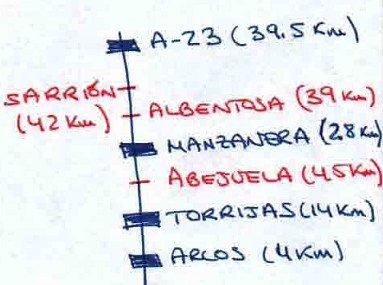 A-23 (39.5 Km)
SARRIÓN
(42 Km)
ALBENTOSA (39 Km)
MANZANERA (28 Km)
ABEJUELA (45 Km)
TORRIJAS (14 Km)
ARCOS (4 Km)